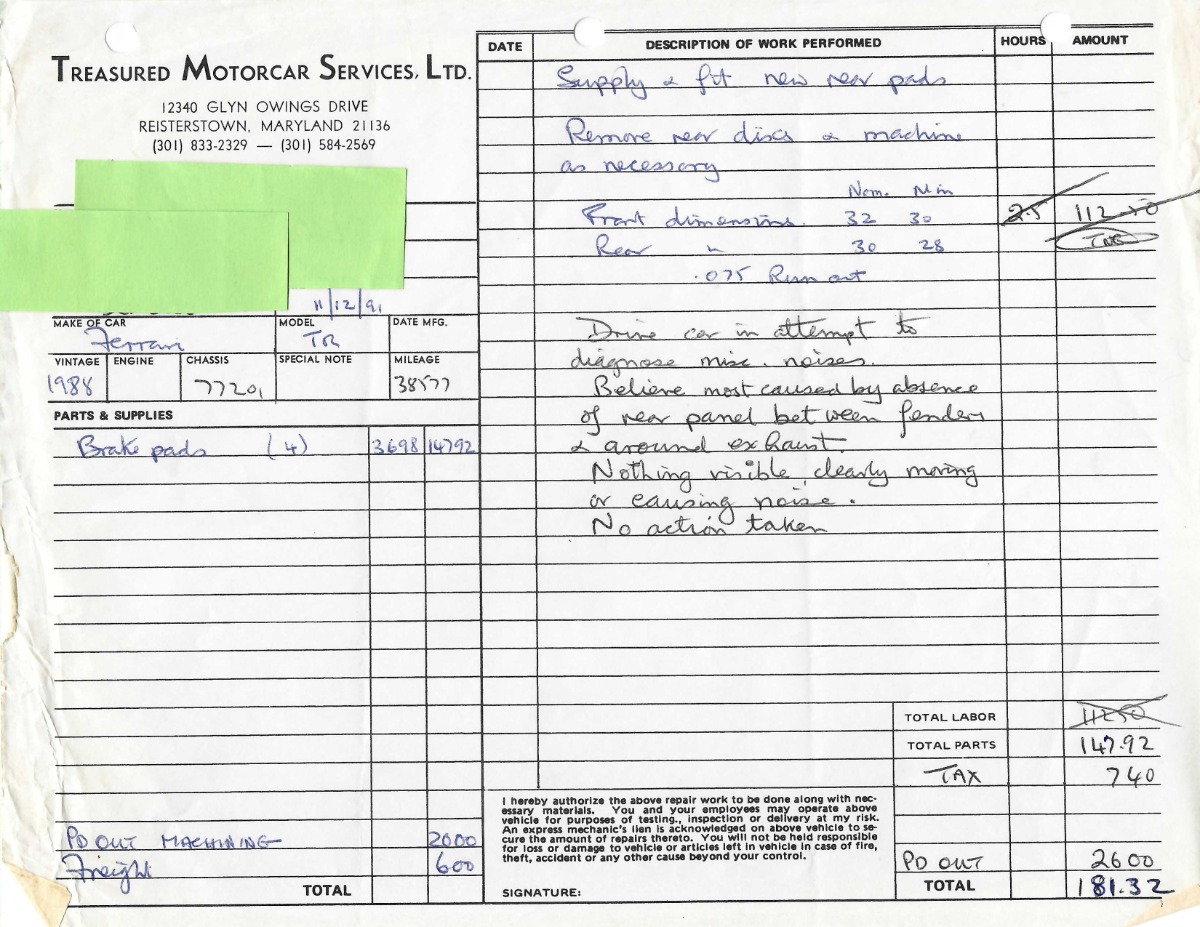 TREASURED MOTORCAR SERVICES, LTD.
12340 GLYN OWINGS DRIVE
REISTERSTOWN, MARYLAND 21136
(301) 833-2329 — (301) 584-2569
11/12/91
MAKE OF CAR
Ferrari
MODEL
TR
DATE MFG.
VINTAGE
1988
ENGINE
CHASSIS
77201
SPECIAL NOTE
MILEAGE
38577
PARTS & SUPPLIES
Brake pads (4) 3698 14792
PD OUT MACHINING 2000
Freight 600
TOTAL
DATE DESCRIPTION OF WORK PERFORMED HOURS AMOUNT
Supply & fit new rear pads
Remove rear discs & machine
as necessary
Nom. Min
Front dimensions 32 30 2.5 112.50
Rear " 30 28 INC
.075 Run out
Drive car in attempt to
diagnose misc. noises.
Believe most caused by absence
of rear panel between fenders
& around exhaust.
Nothing visible, clearly moving
or causing noise.
No action taken
TOTAL LABOR 11250
TOTAL PARTS 147.92
TAX 740
I hereby authorize the above repair work to be done along with nec-
essary materials. You and your employees may operate above
vehicle for purposes of testing, inspection or delivery at my risk.
An express mechanic's lien is acknowledged on above vehicle to se-
cure the amount of repairs thereto. You will not be held responsible
for loss or damage to vehicle or articles left in vehicle in case of fire,
theft, accident or any other cause beyond your control.
SIGNATURE:
PD OUT 2600
TOTAL 181.32